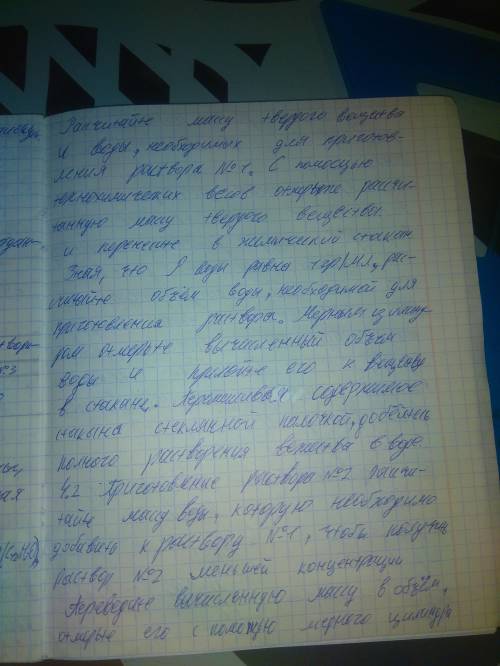 Рассчитайте массу твердого вещества
и воды, необходимых для приготов-
ления раствора №1. С помощью
технохимических весов открыте рассчи-
танную массу твердого вещества.
и перенесите в химический стакан
Зная, что ρ воды равна 1гр/мл, рас-
считайте объём воды, необходимой для
приготовления раствора. Мерным цилинд-
ром отмерьте вычисленный объём
воды и прилейте его к веществу
в стакане. Перемешивая содержимое
стакана стеклянной палочкой, добейтесь
полного растворения вещества в воде.
4.2 Приготовление раствора №2 Рассчи-
тайте массу воды, которую необходимо
добавить к раствору №1, чтобы получить
раствор №2 меньшей концентрации
Переведите вычисленную массу в объём,
отмерьте его с помощью мерного цилиндра
№3
ная